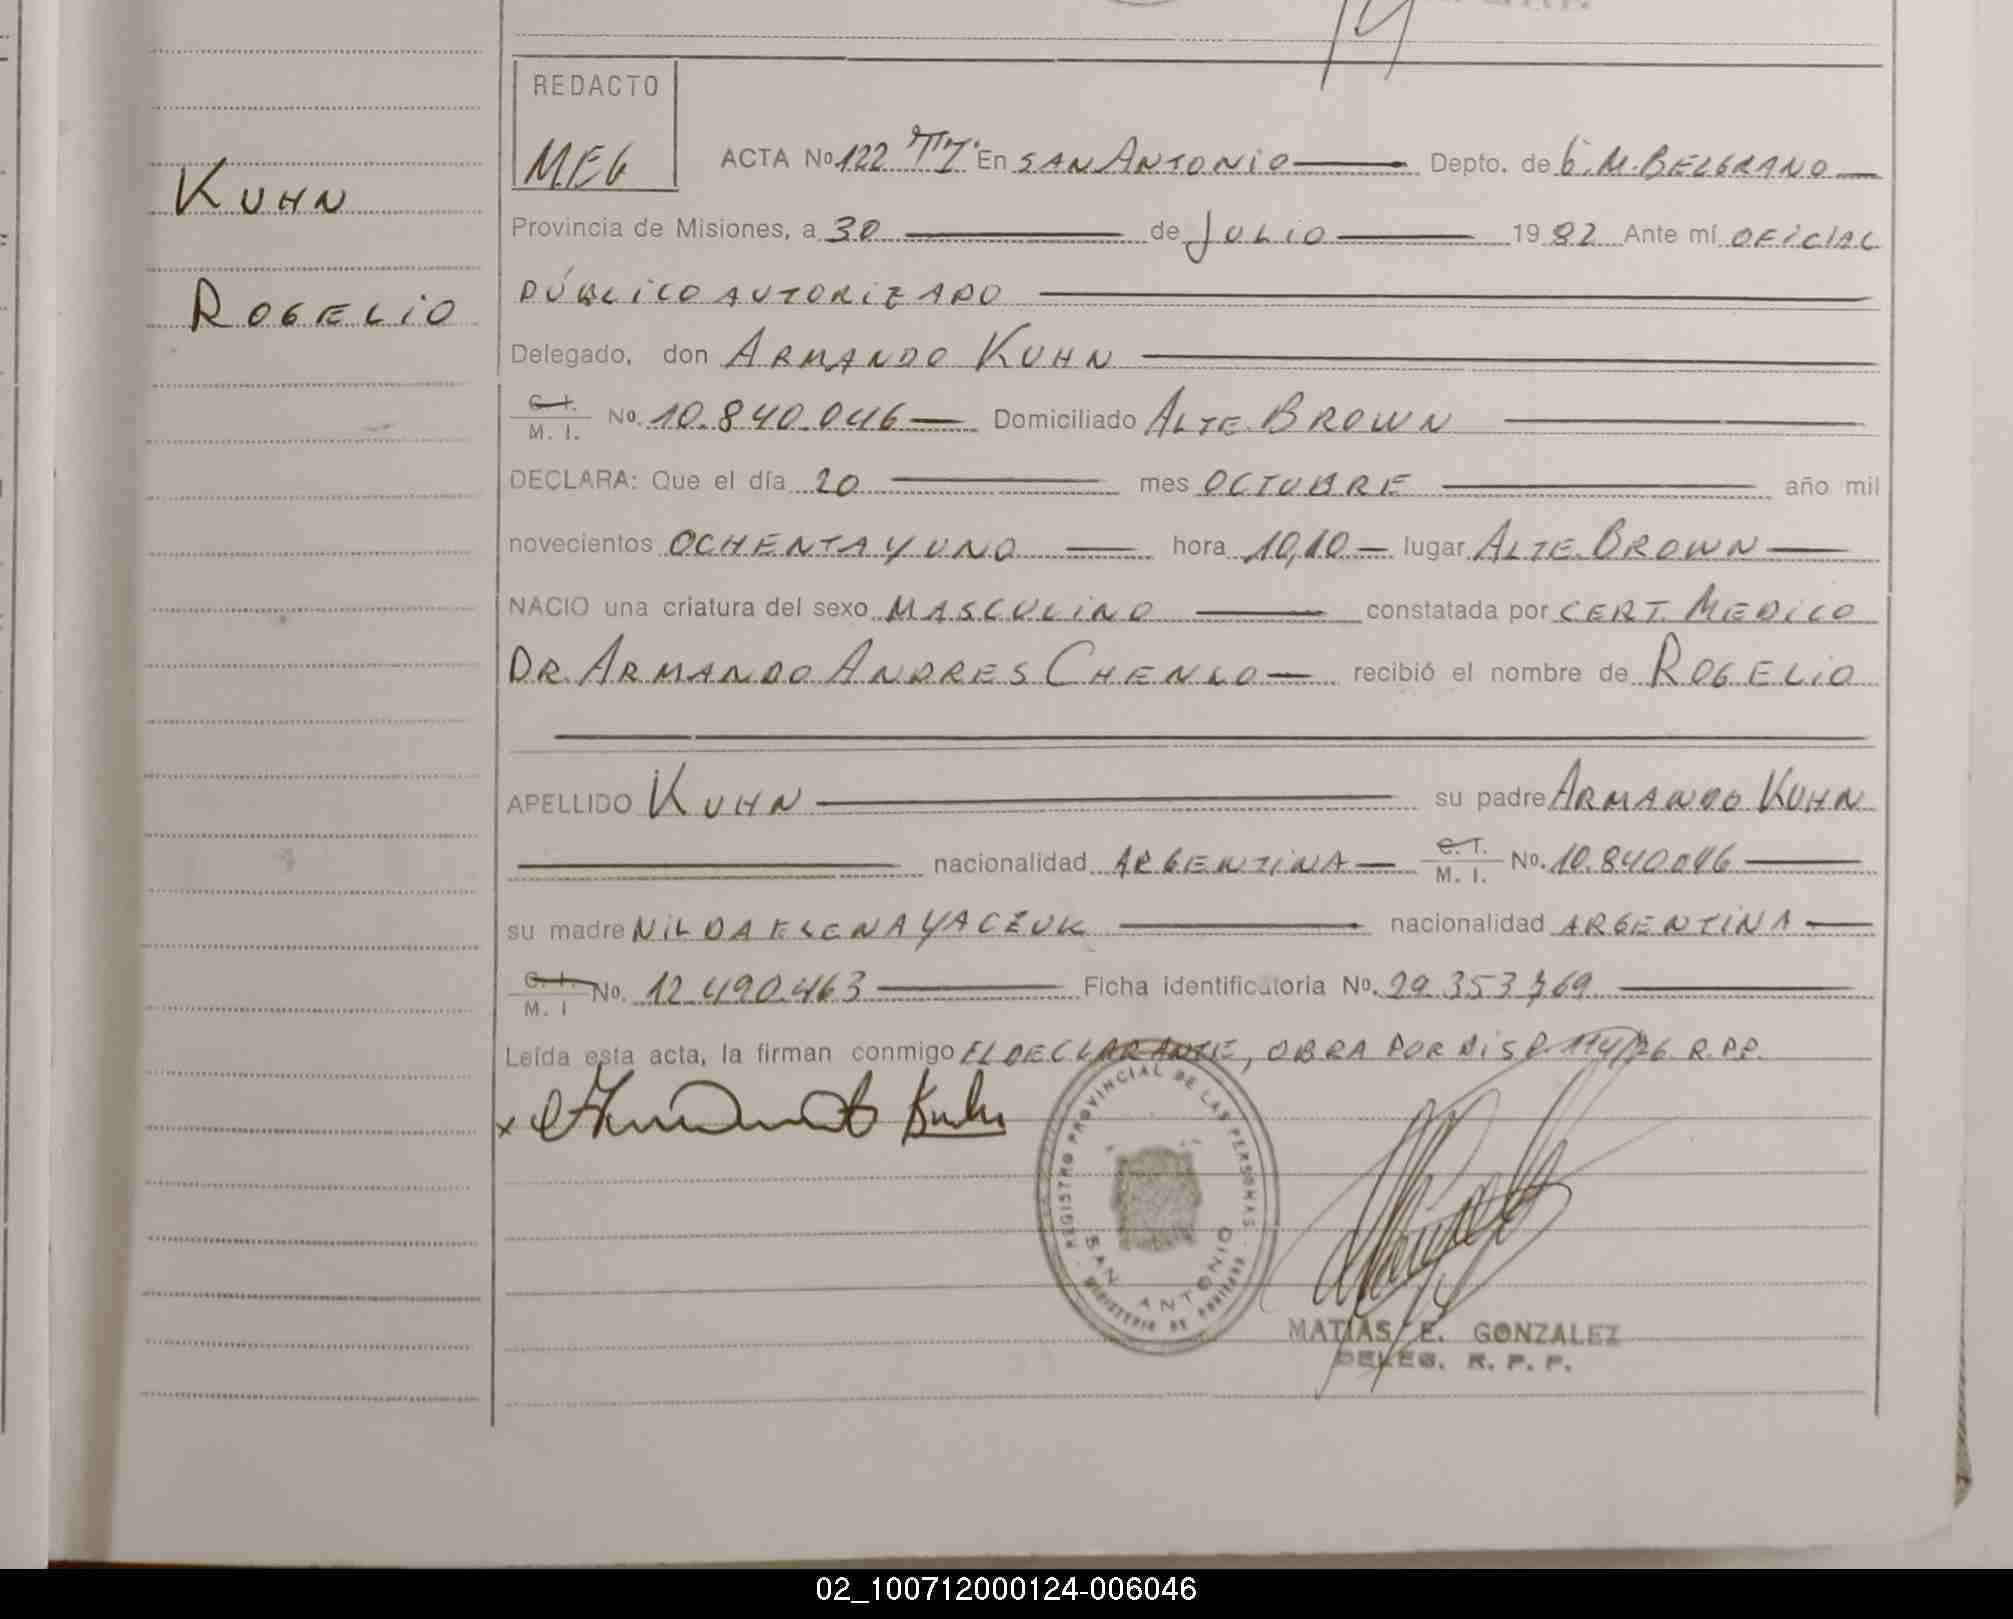 KUHN
ROGELIO
REDACTO
MEG
ACTA No 122 TI En SAN ANTONIO Depto. de G. M. BELGRANO
Provincia de Misiones, a 30 de JULIO 1982 Ante mí OFICIAL
PÚBLICO AUTORIZADO
Delegado, don ARMANDO KUHN
C. I.
M. I. No. 10.840.046 Domiciliado ALTE. BROWN
DECLARA: Que el día 20 mes OCTUBRE año mil
novecientos OCHENTA Y UNO hora 10,10 lugar ALTE. BROWN
NACIO una criatura del sexo MASCULINO constatada por CERT. MEDICO
DR. ARMANDO ANDRES CHENLO recibió el nombre de ROGELIO
APELLIDO KUHN su padre ARMANDO KUHN
nacionalidad ARGENTINA C. I.
M. I. No. 10.840.046
su madre NILDA ELENA YACZUK nacionalidad ARGENTINA
C. I.
M. I No. 12.490.463 Ficha identificatoria No. 29.353.769
Leída esta acta, la firman conmigo EL DECLARANTE, OBRA POR DISP. 114/76 R.P.P.
x Armando Kuhn
REGISTRO PROVINCIAL DE LAS PERSONAS
SAN ANTONIO
MINISTERIO DE
MATIAS E. GONZALEZ
DELEG. R. P. P.
02_100712000124-006046